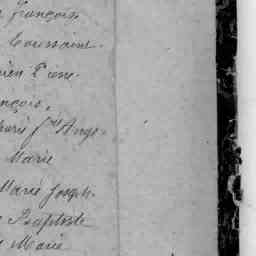 François
Toussaint.
Pierre
nçois.
fᵗᵉ Ange
Marie
Marie Joseph.
Baptiste
Marie